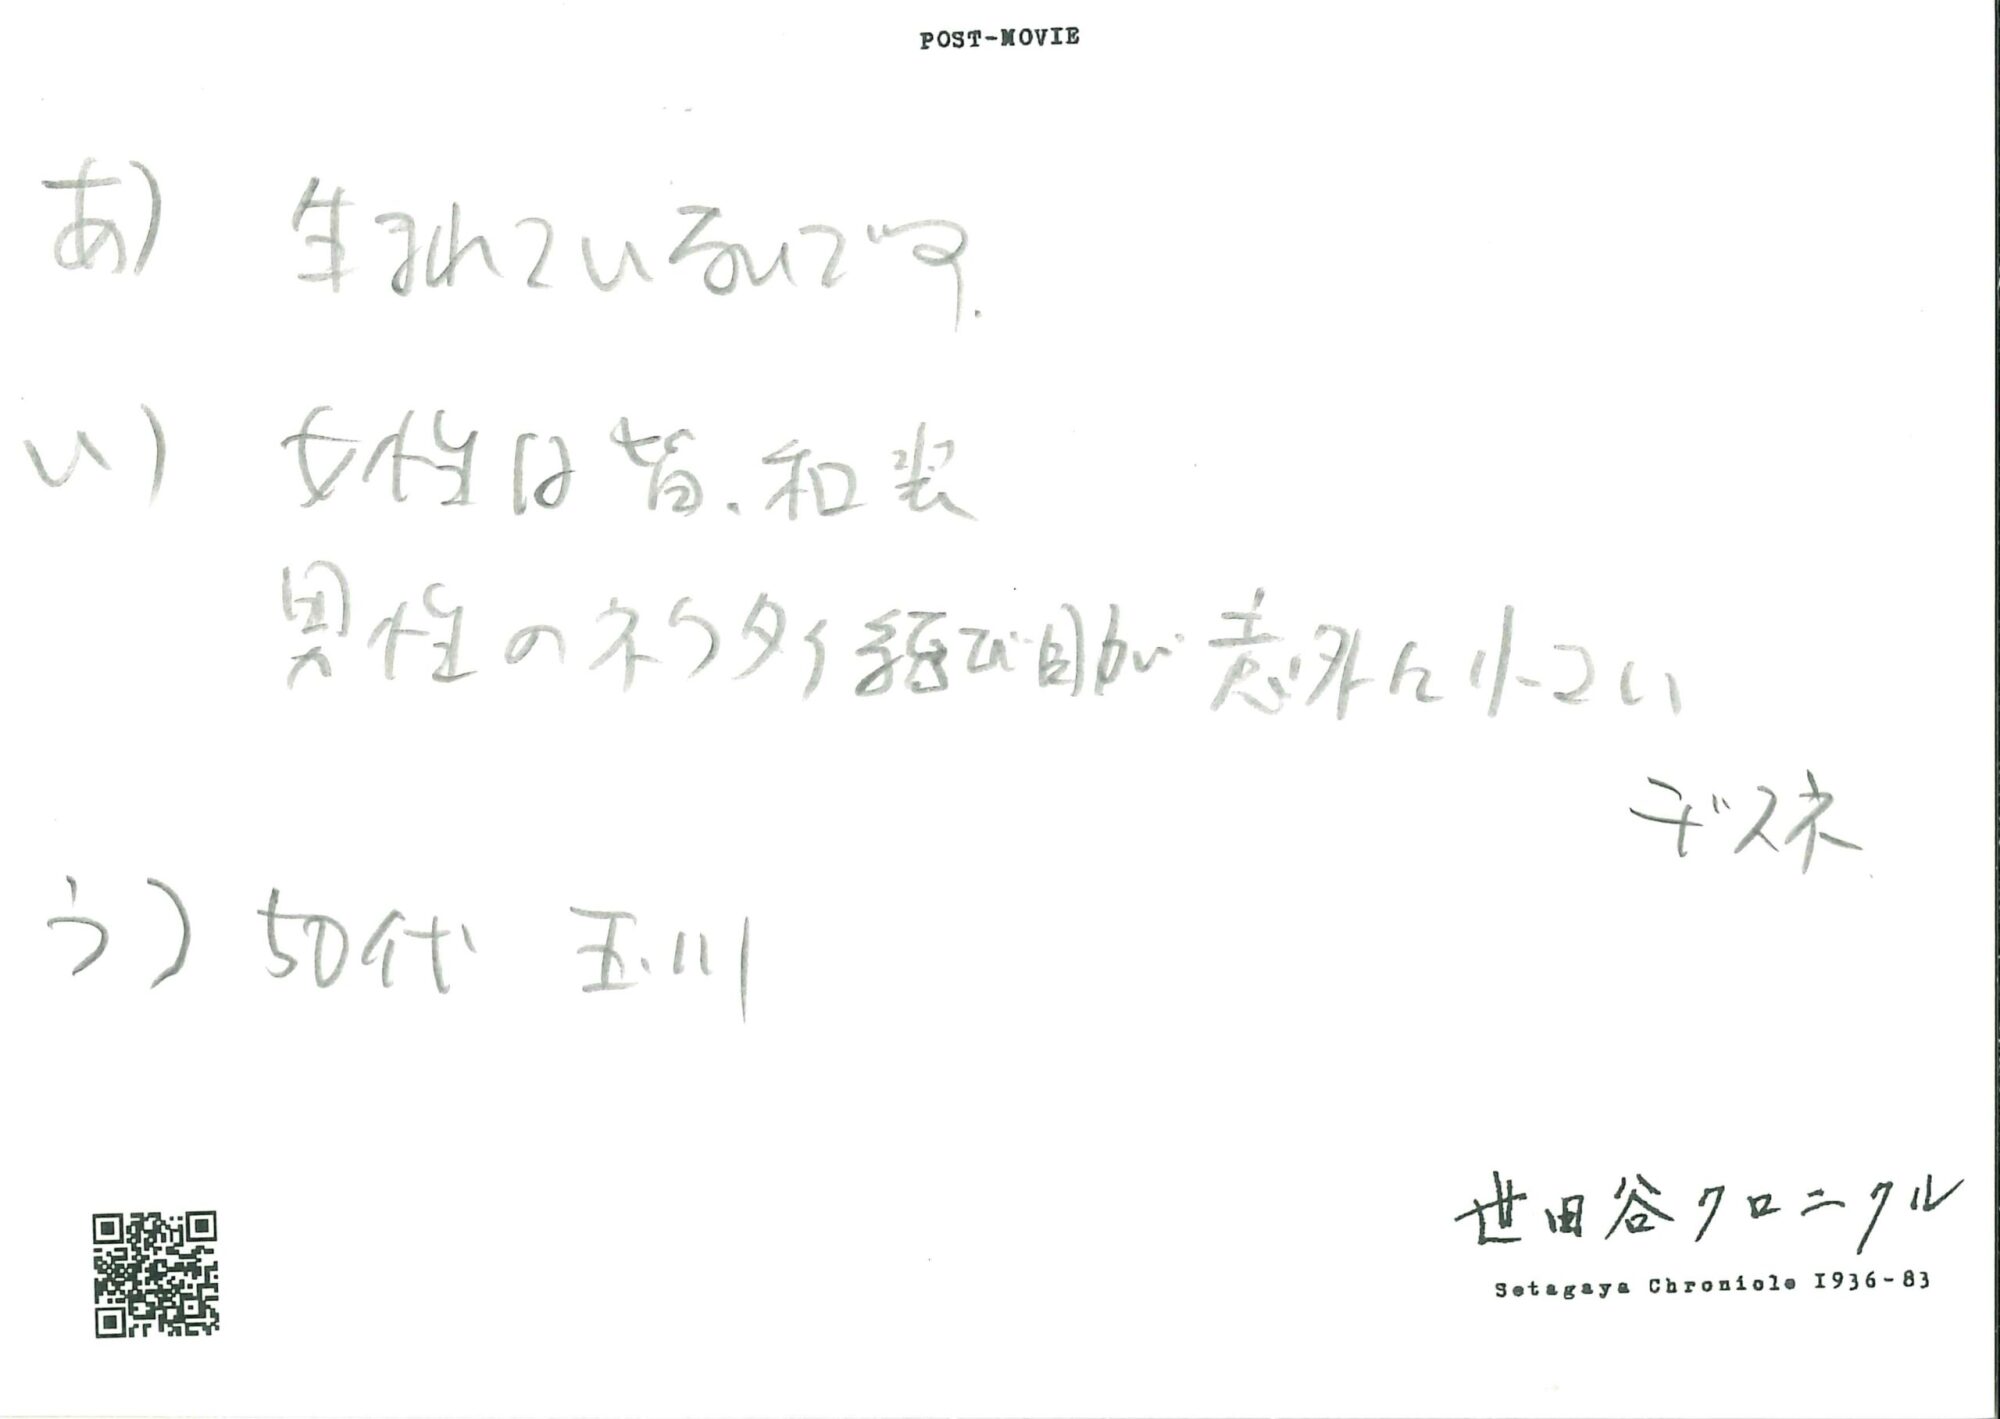 POST-MOVIE
あ) 生まれていないです.
い) 女性は皆、和装
男性のネクタイ結び目が意外に小さい
デスネ
う) 50代 玉川
世田谷クロニクル
Setagaya Chronicle 1936-83